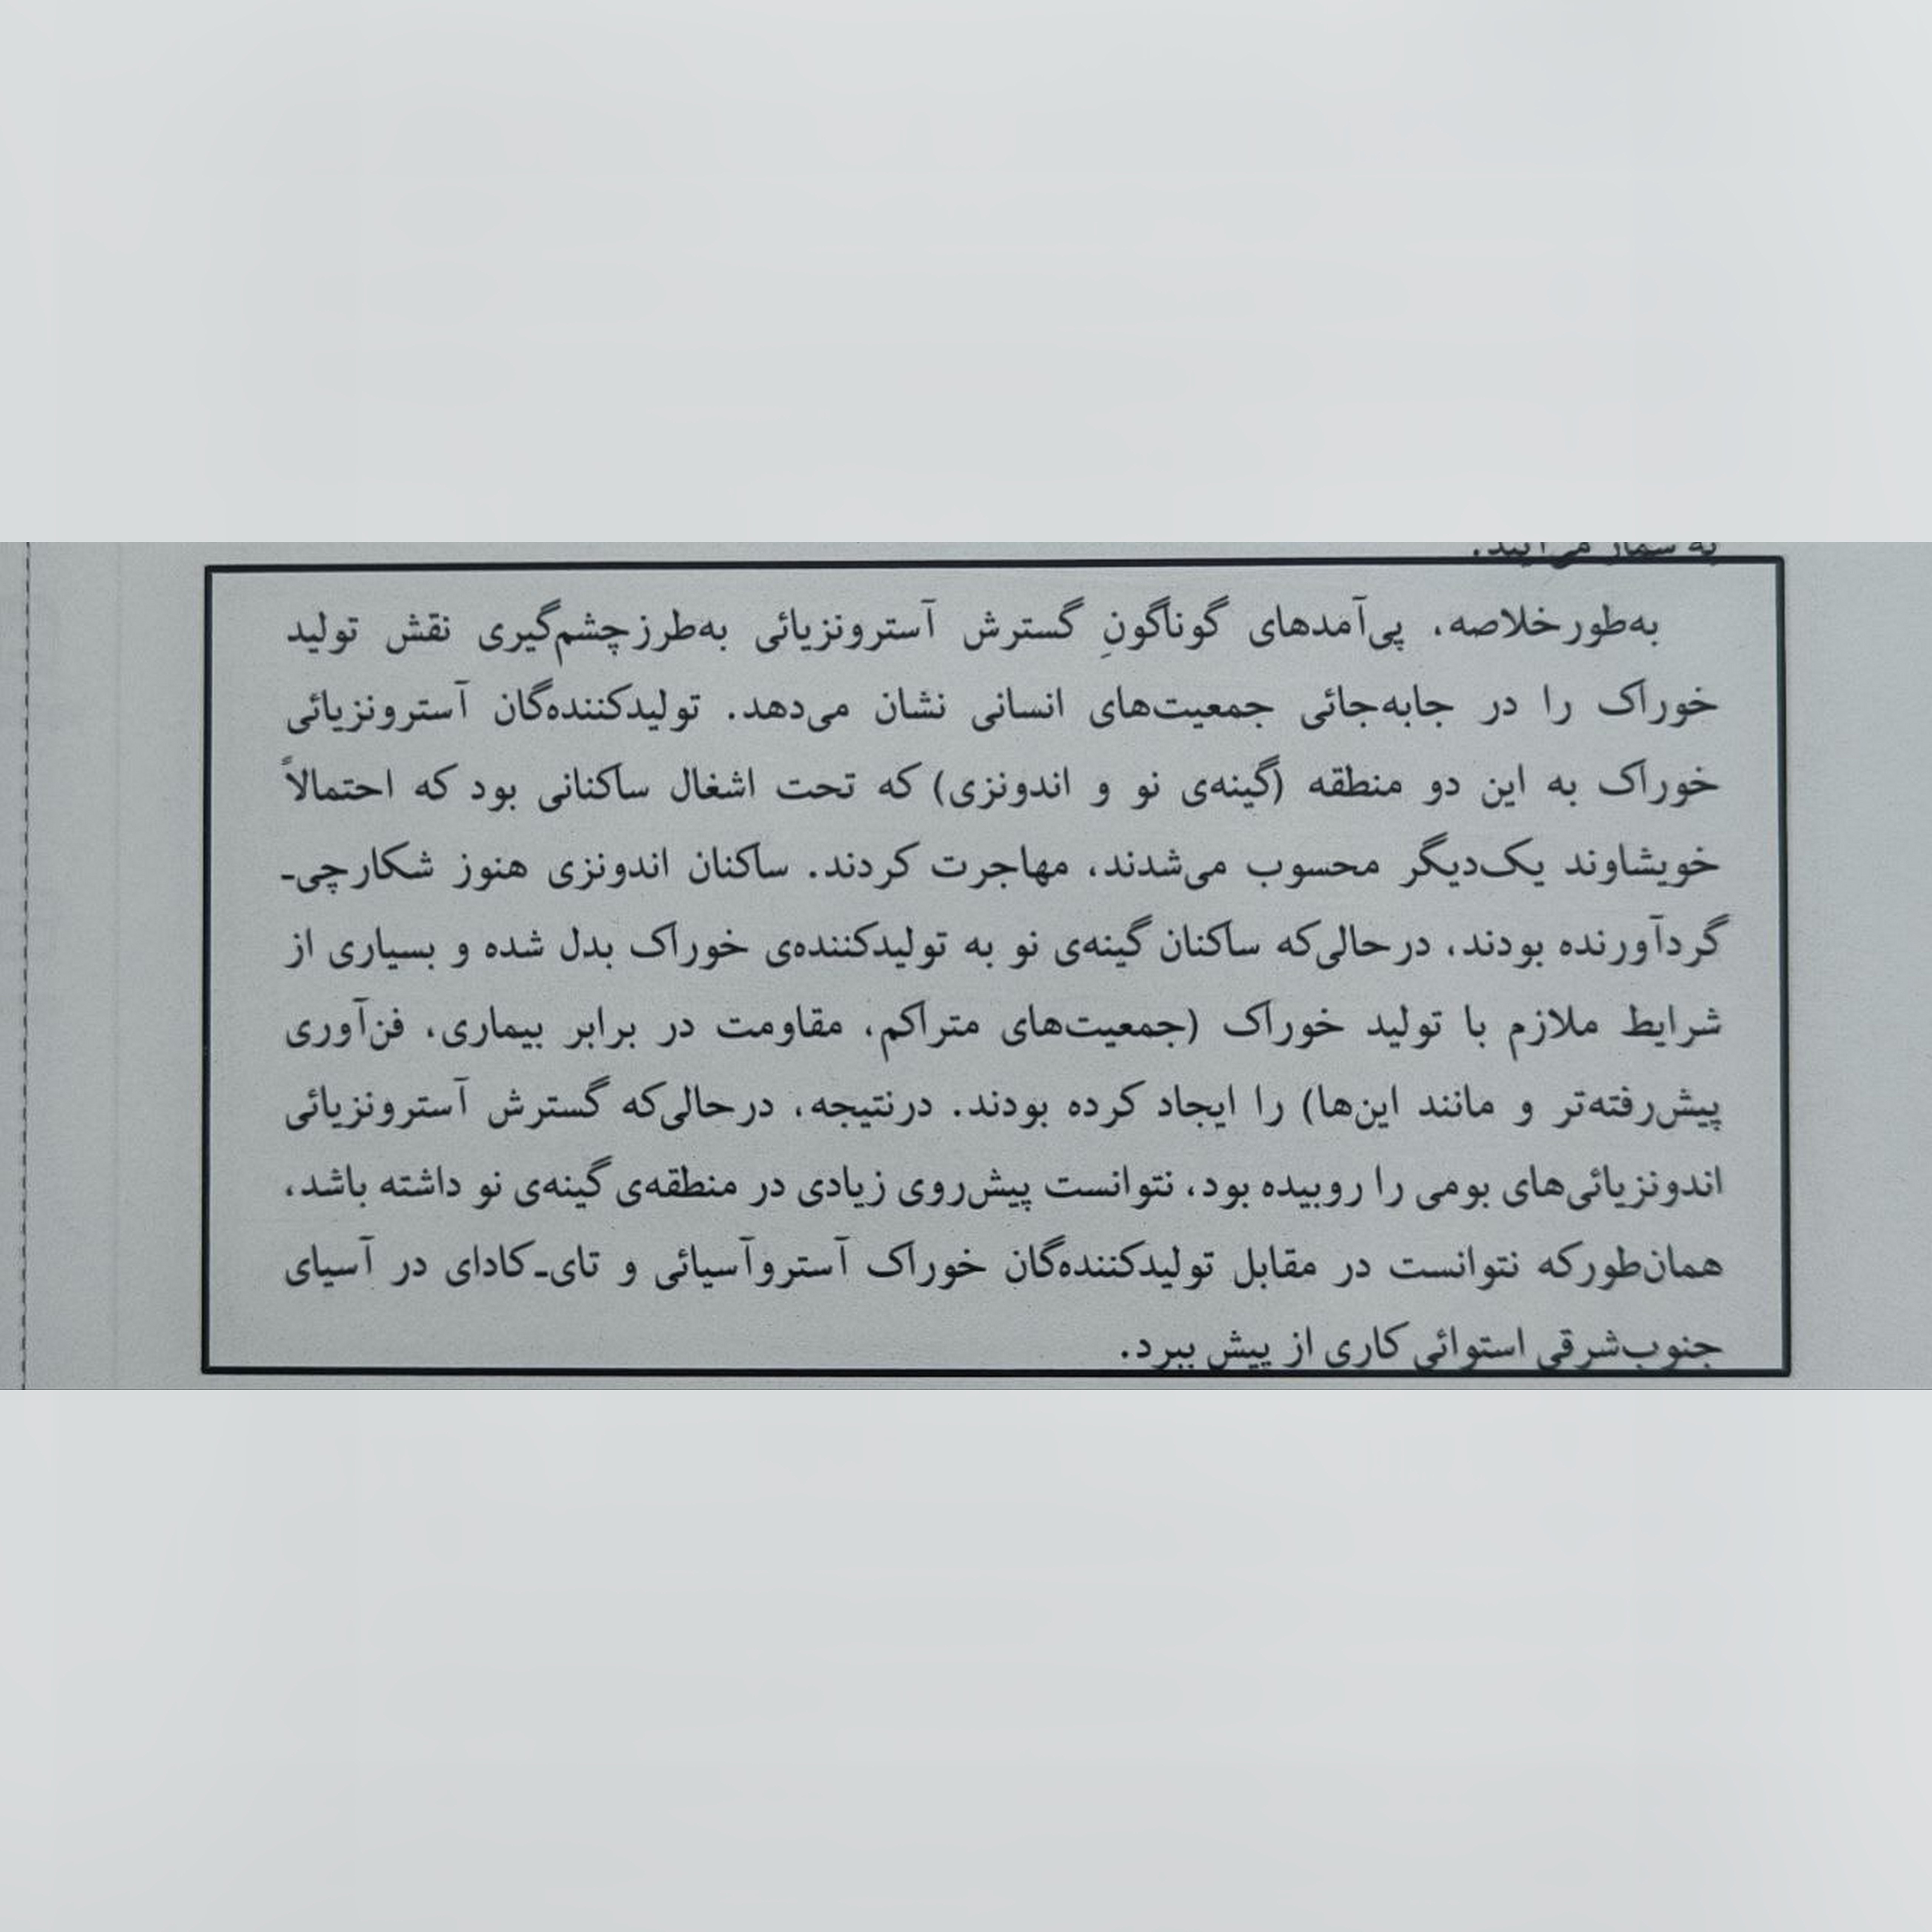 به شمار می‌آیند.
به‌طورخلاصه، پی‌آمدهای گوناگونِ گسترش آسترونزیائی به‌طرزچشم‌گیری نقش تولید
خوراک را در جابه‌جائی جمعیت‌های انسانی نشان می‌دهد. تولیدکننده‌گان آسترونزیائی
خوراک به این دو منطقه (گینه‌ی نو و اندونزی) که تحت اشغال ساکنانی بود که احتمالاً
خویشاوند یک‌دیگر محسوب می‌شدند، مهاجرت کردند. ساکنان اندونزی هنوز شکارچی‌ـ
گردآورنده بودند، درحالی‌که ساکنان گینه‌ی نو به تولیدکننده‌ی خوراک بدل شده و بسیاری از
شرایط ملازم با تولید خوراک (جمعیت‌های متراکم، مقاومت در برابر بیماری، فن‌آوری
پیش‌رفته‌تر و مانند این‌ها) را ایجاد کرده بودند. درنتیجه، درحالی‌که گسترش آسترونزیائی
اندونزیائی‌های بومی را روبیده بود، نتوانست پیش‌روی زیادی در منطقه‌ی گینه‌ی نو داشته باشد،
همان‌طورکه نتوانست در مقابل تولیدکننده‌گان خوراک آستروآسیائی و تای‌ـکادای در آسیای
جنوب‌شرقی استوائی کاری از پیش ببرد.